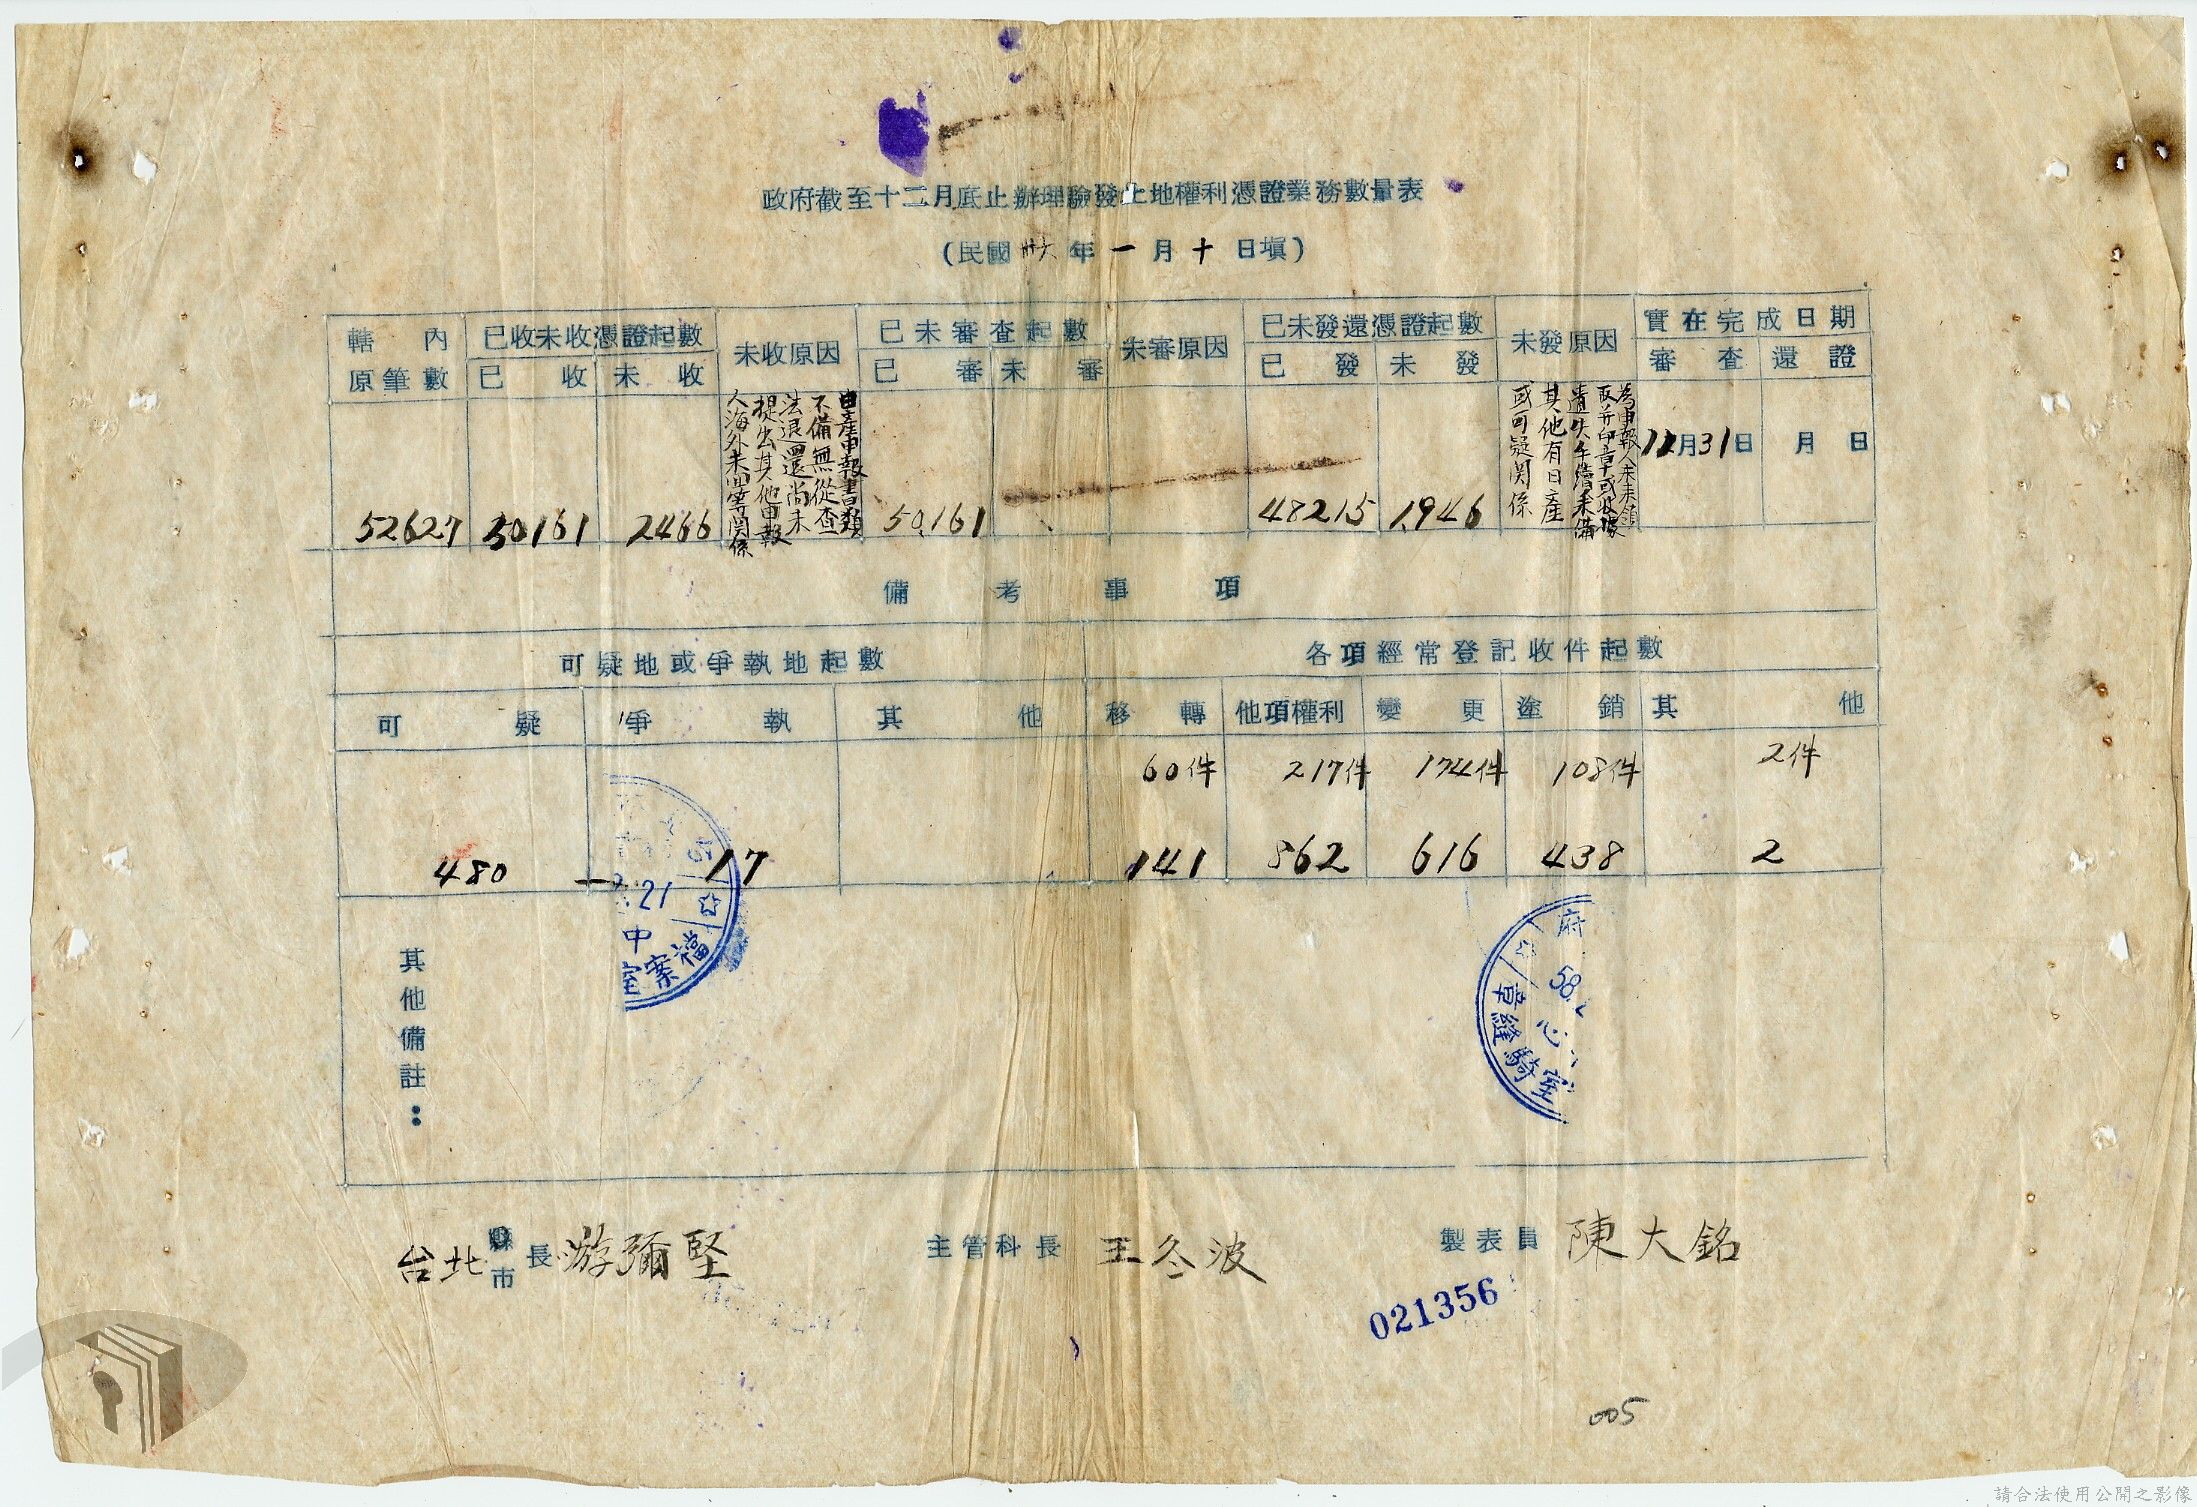 政府截至十二月底止辦理驗發土地權利憑證業務數量表
(民國卅六年一月十日塡)
轄內原筆數
已收未收憑證起數
已收
未收
未收原因
已未審查起數
已審
未審
未審原因
已未發還憑證起數
已發
未發
未發原因
實在完成日期
審查
還證
52627
50161
2466
日產申報書類
不備無從查
法退回還尚未
提出其他申報
人海外未回等関係
50,161
48215
1,946
為申報人未來領
取并印章或收據
遺失手續未備
其他有日產
或可疑関係
12月31日
月 日
備考事項
可疑地或爭執地起數
各項經常登記收件起數
可疑
爭執
其他
移轉
他項權利
變更
塗銷
其他
60件
217件
174件
108件
2件
480
17
141
862
616
438
2
21
中
檔案室
府
58.
心
章縫騎室
其他備註：
台北縣市長 游彌堅
主管科長 王冬波
製表員 陳大銘
021356
005
請合法使用公開之影像